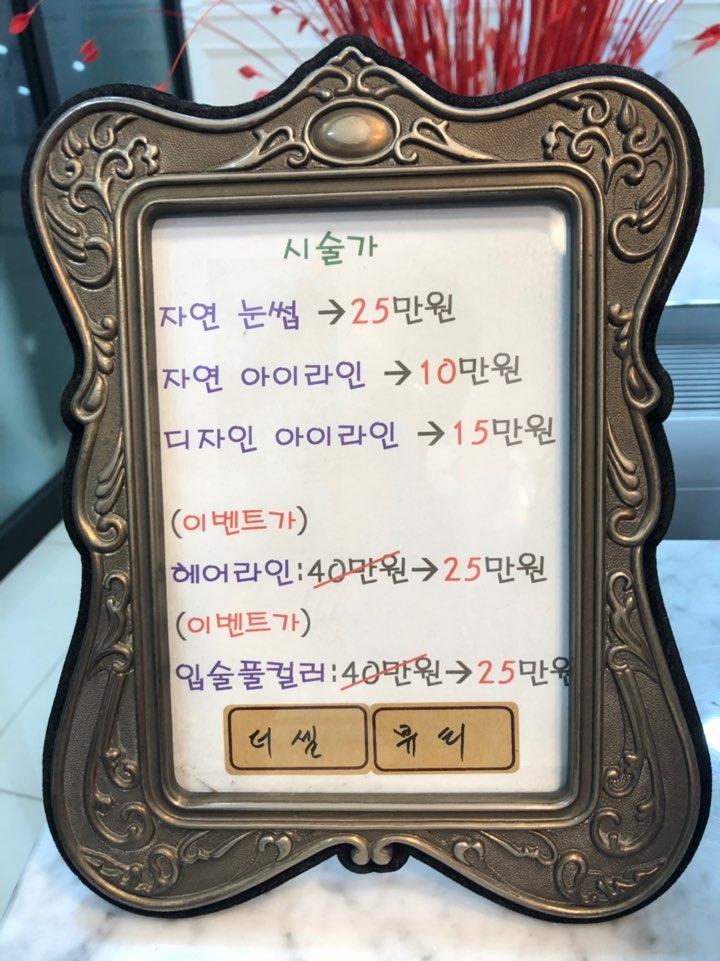 시술가
자연 눈썹 →25만원
자연 아이라인 →10만원
디자인 아이라인 →15만원
(이벤트가)
헤어라인:40만원→25만원
(이벤트가)
입술풀컬러:40만원→25만원
더셀 뷰티